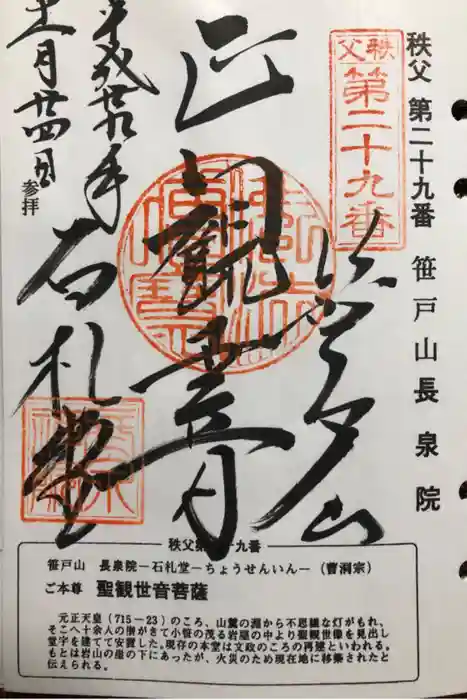 秩父 第二十九番 笹戸山長泉院
秩父
第二十九番
笹戸山
正観世音
石札堂
平成廿九年
十一月廿四日
参拝
秩父第二十九番
笹戸山 長泉院−石札堂−ちょうせんいん−(曹洞宗)
ご本尊 聖観世音菩薩
元正天皇(715−23)のころ、山麓の淵から不思議な灯がもれ、
そこへ十余人の僧がきて小笹の茂る岩窟の中より聖観世音像を見出し
堂宇を建てて安置した。現存の本堂は文政のころの再建といわれる。
もとは岩山の崖の下にあったが、火災のため現在地に移築されたと
伝えられる。